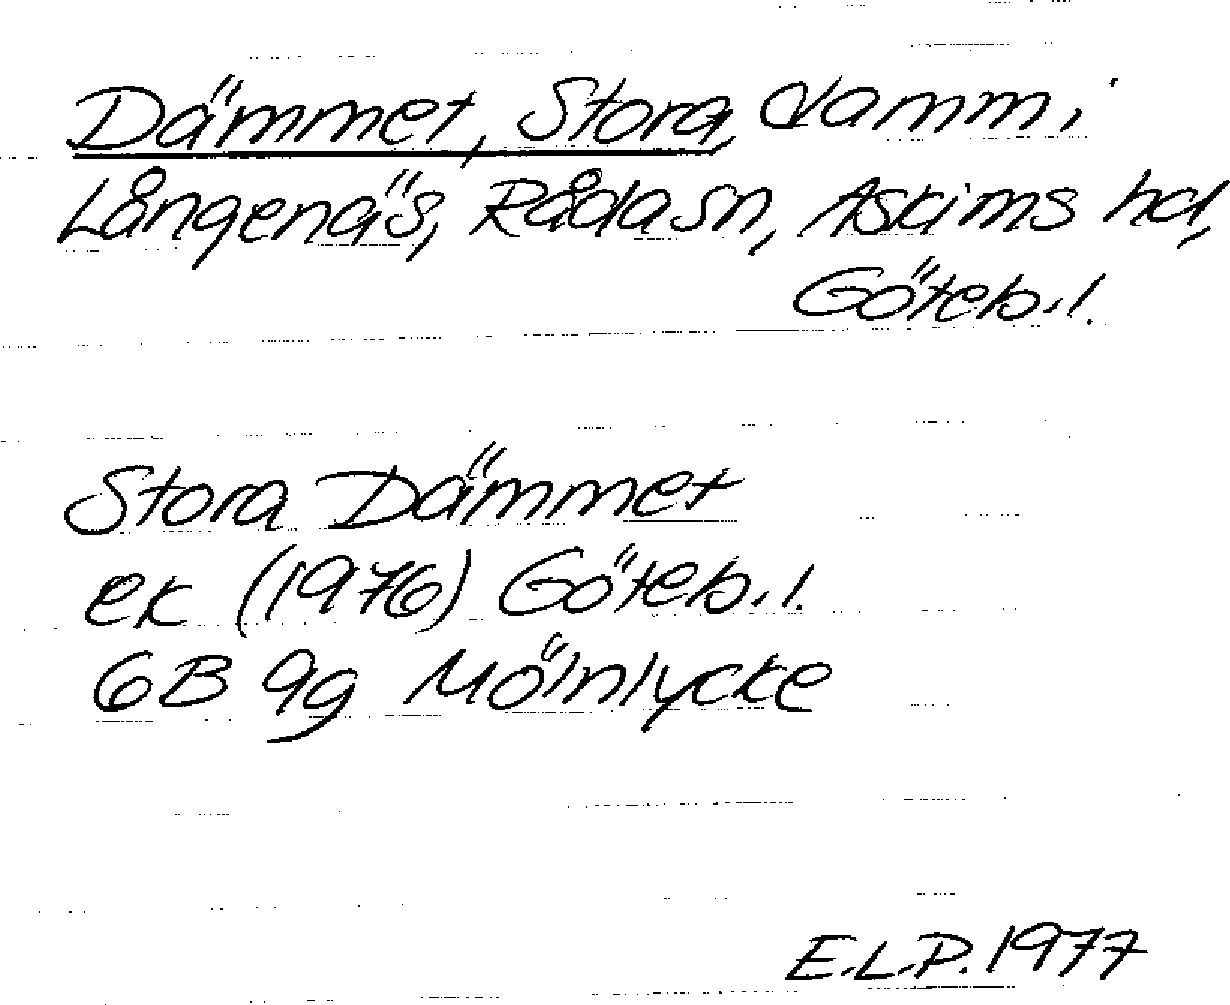 Dämmet, Stora, damm i
Långenäs, Råda sn, Askims hd,
Göteb.l.
Stora Dämmet
ek (1976) Göteb.l.
6B 9g Mölnlycke
E.L.P. 1977